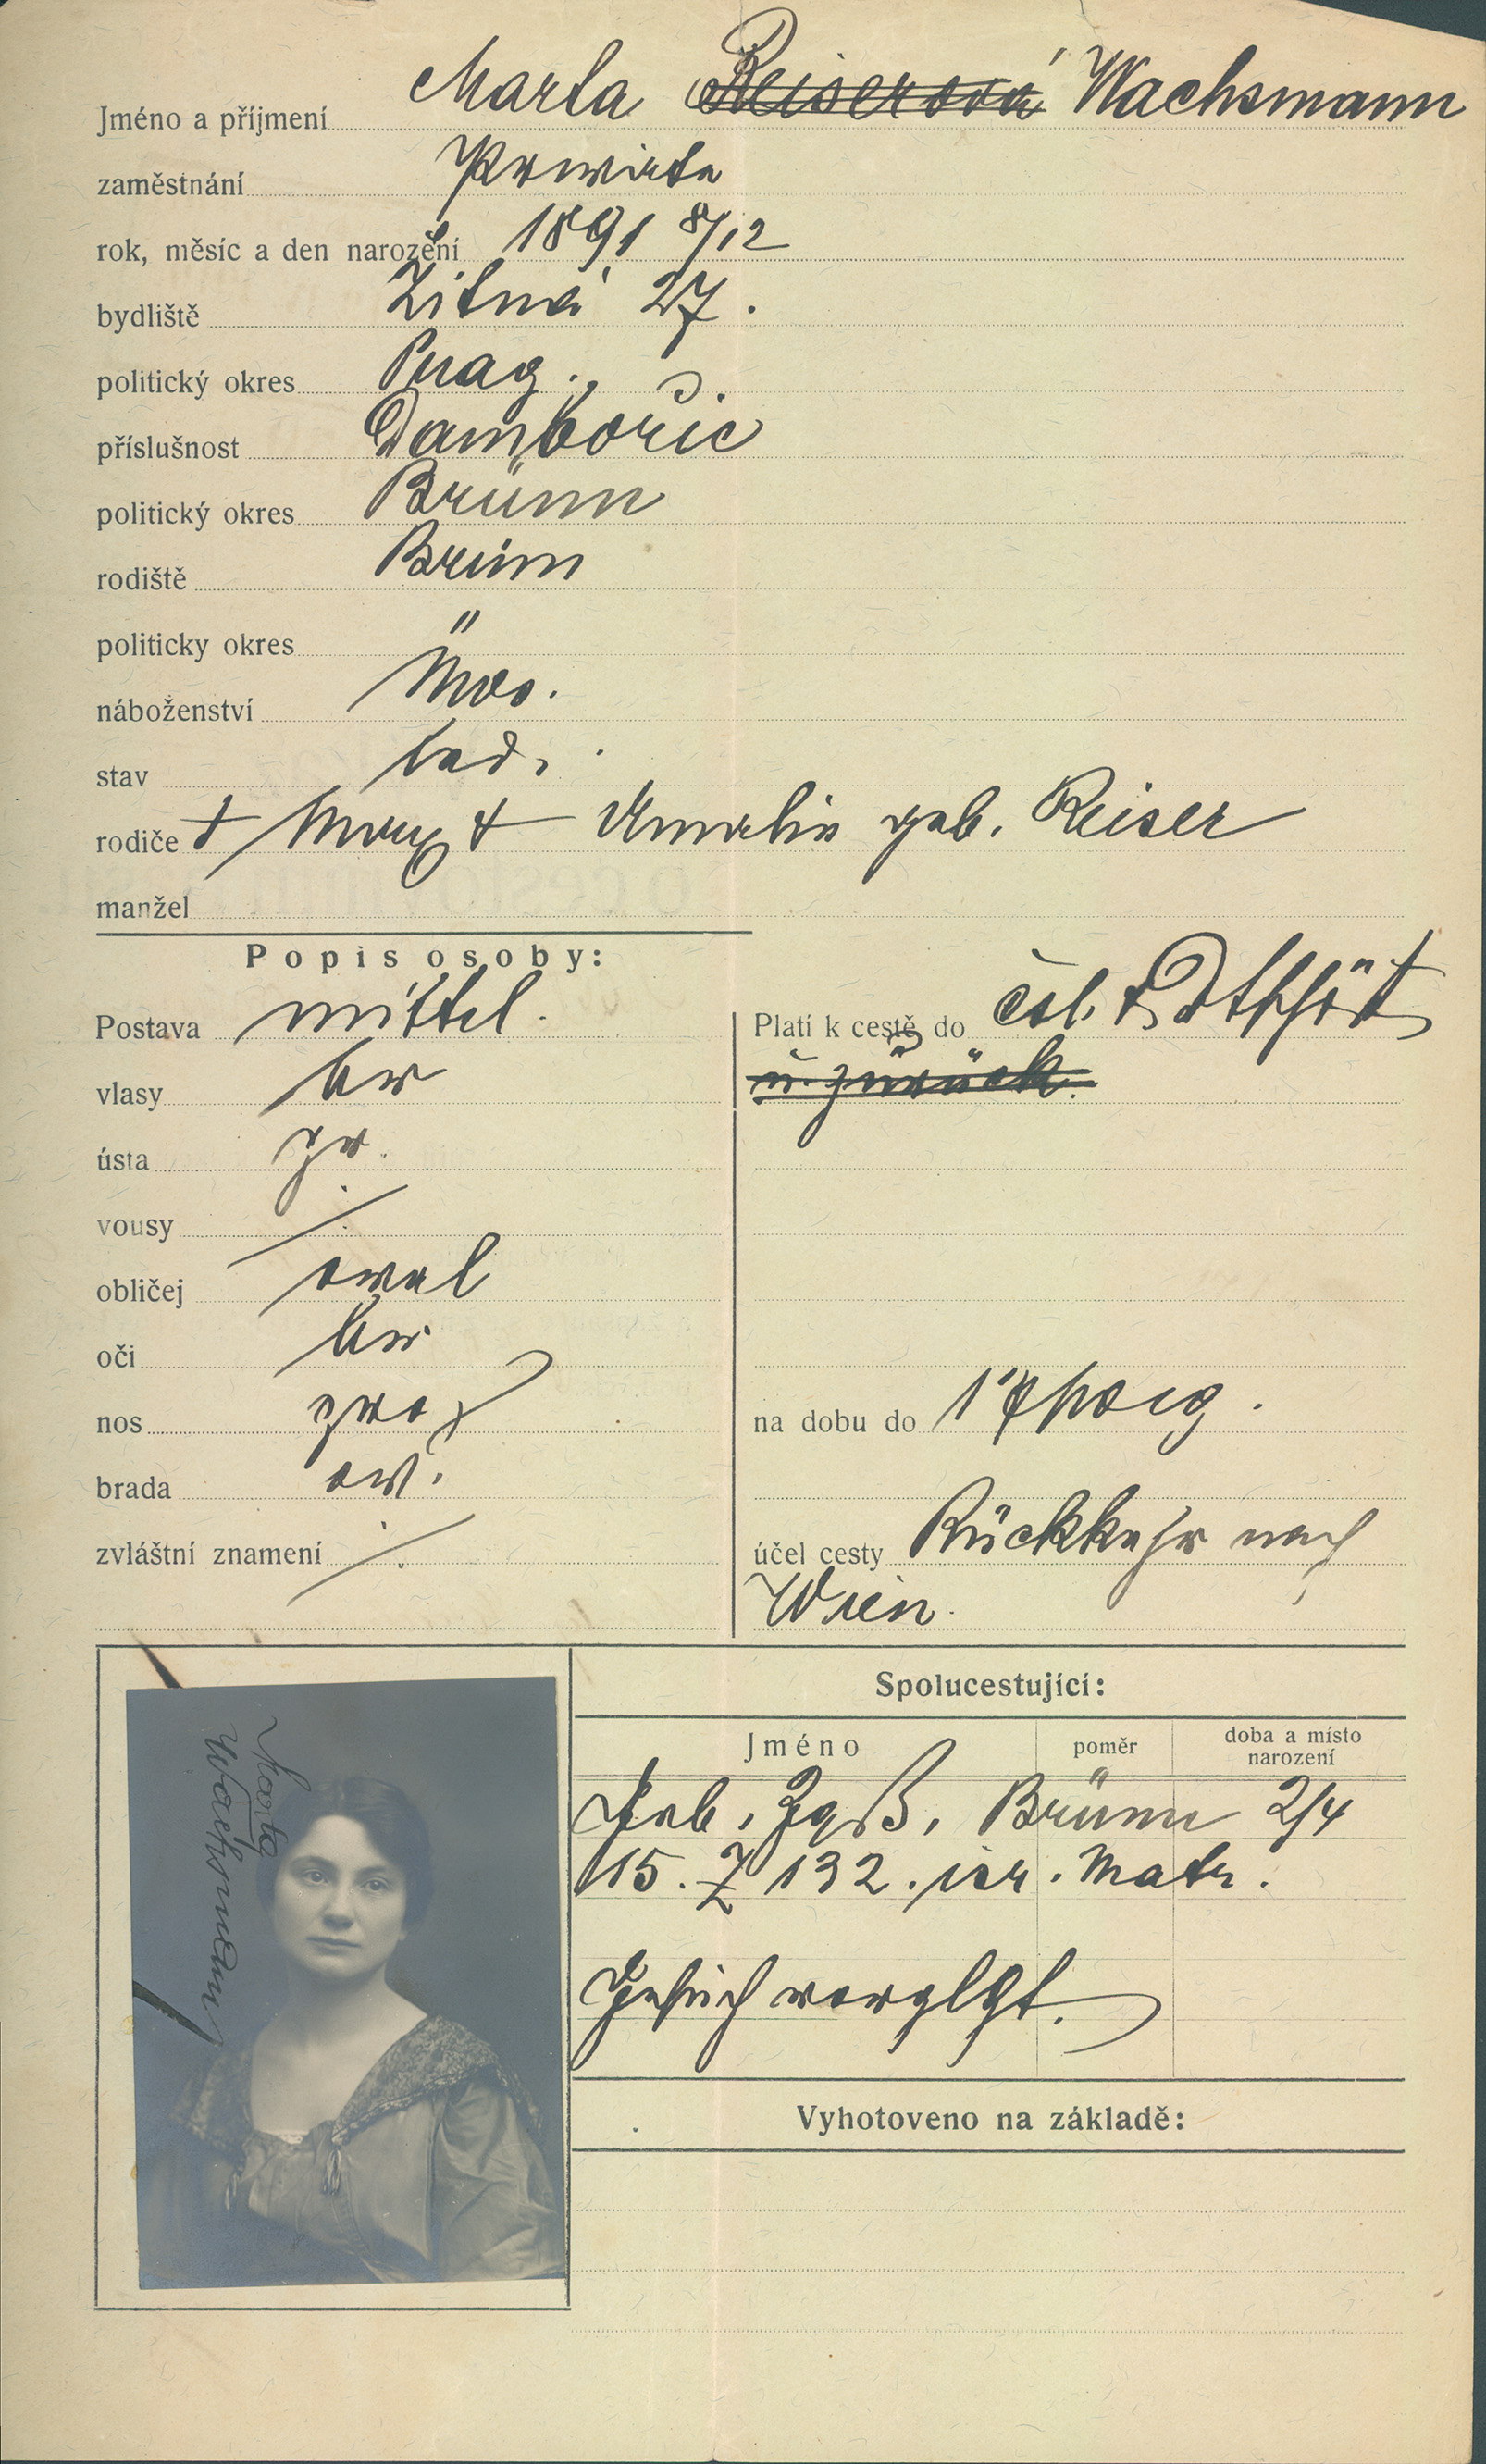 Jméno a příjmení Marta Reiserová Wachsmann
zaměstnání Private
rok, měsíc a den narození 1891 8/12
bydliště Žitná 27.
politický okres Prag.
příslušnost Dambořic
politický okres Brünn
rodiště Brünn
politicky okres "
náboženství mos.
stav led.
rodiče † Max † Amalie geb. Reiser
manžel
Popis osoby:
Postava mittel.
vlasy br
ústa gr.
vousy ·/·
obličej oval
oči br
nos gr
brada ov.
zvláštní znamení ·/·
Platí k cestě do čsl. D Öst
u. zurück.
na dobu do 1
účel cesty Rückkehr nach
Wien.
Marta
Wachsmann
Spolucestující:
Jméno poměr doba a místo
narození
Geb. Zg. Brünn 2/4
15. Z 132. isr. Matr.
Gesuch
Vyhotoveno na základě: